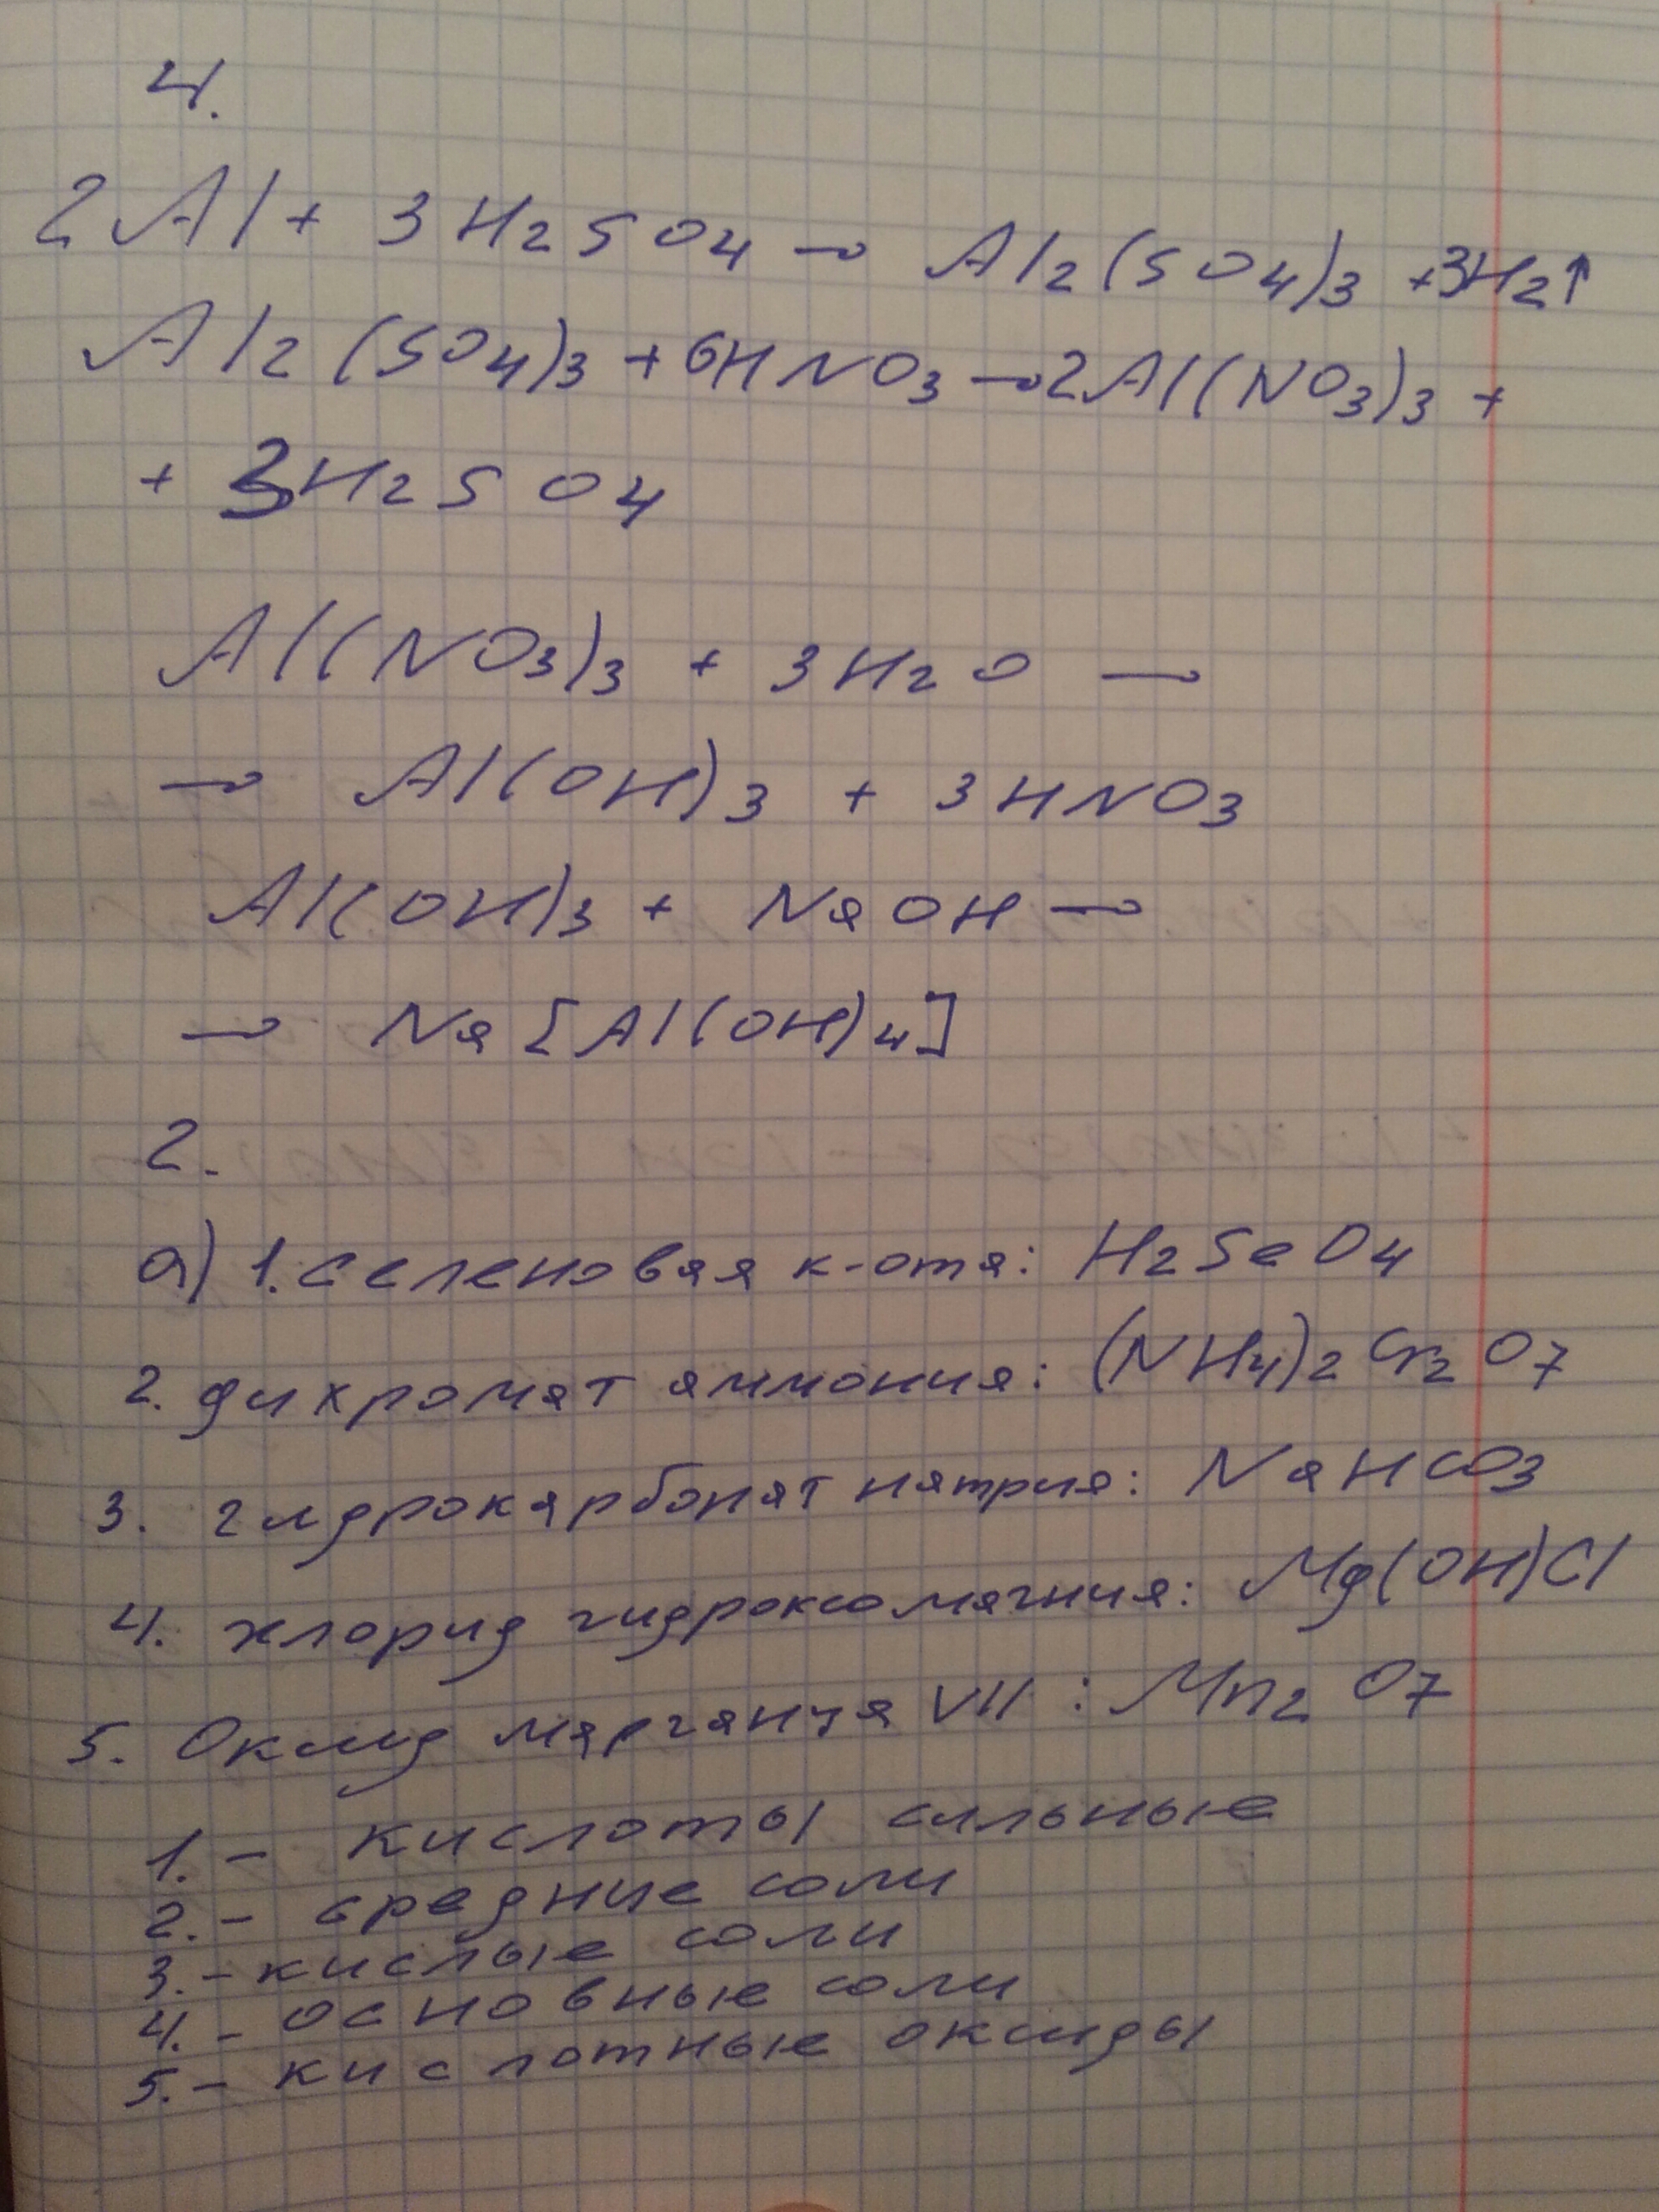 4.
2Al + 3H2SO4 → Al2(SO4)3 + 3H2↑
Al2(SO4)3 + 6HNO3 → 2Al(NO3)3 +
+ 3H2SO4
Al(NO3)3 + 3H2O →
→ Al(OH)3 + 3HNO3
Al(OH)3 + NaOH →
→ Na[Al(OH)4]
2.
а) 1. селеновая к-ота: H2SeO4
2. дихромат аммония: (NH4)2Cr2O7
3. гидрокарбонат натрия: NaHCO3
4. хлорид гидроксомагния: Mg(OH)Cl
5. Оксид марганца VII : Mn2O7
1. - кислоты сильные
2. - средние соли
3. - кислые соли
4. - основные соли
5. - кислотные оксиды